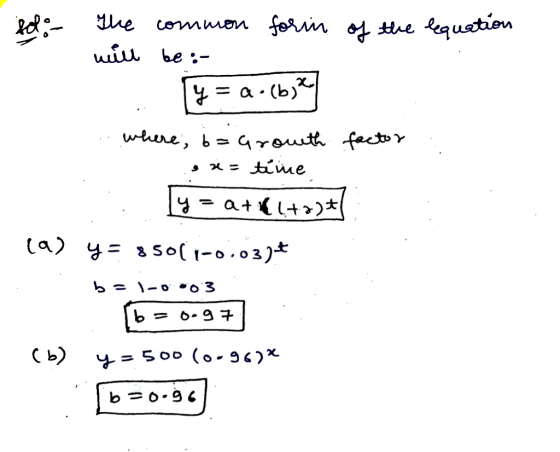 Sol:- The common form of the equation
will be :-
y = a · (b)^x
where, b = Growth factor
, x = time
y = a + (1+r)^t
(a) y = 850(1-0.03)^t
b = 1-0.03
b = 0.97
(b) y = 500 (0.96)^x
b = 0.96